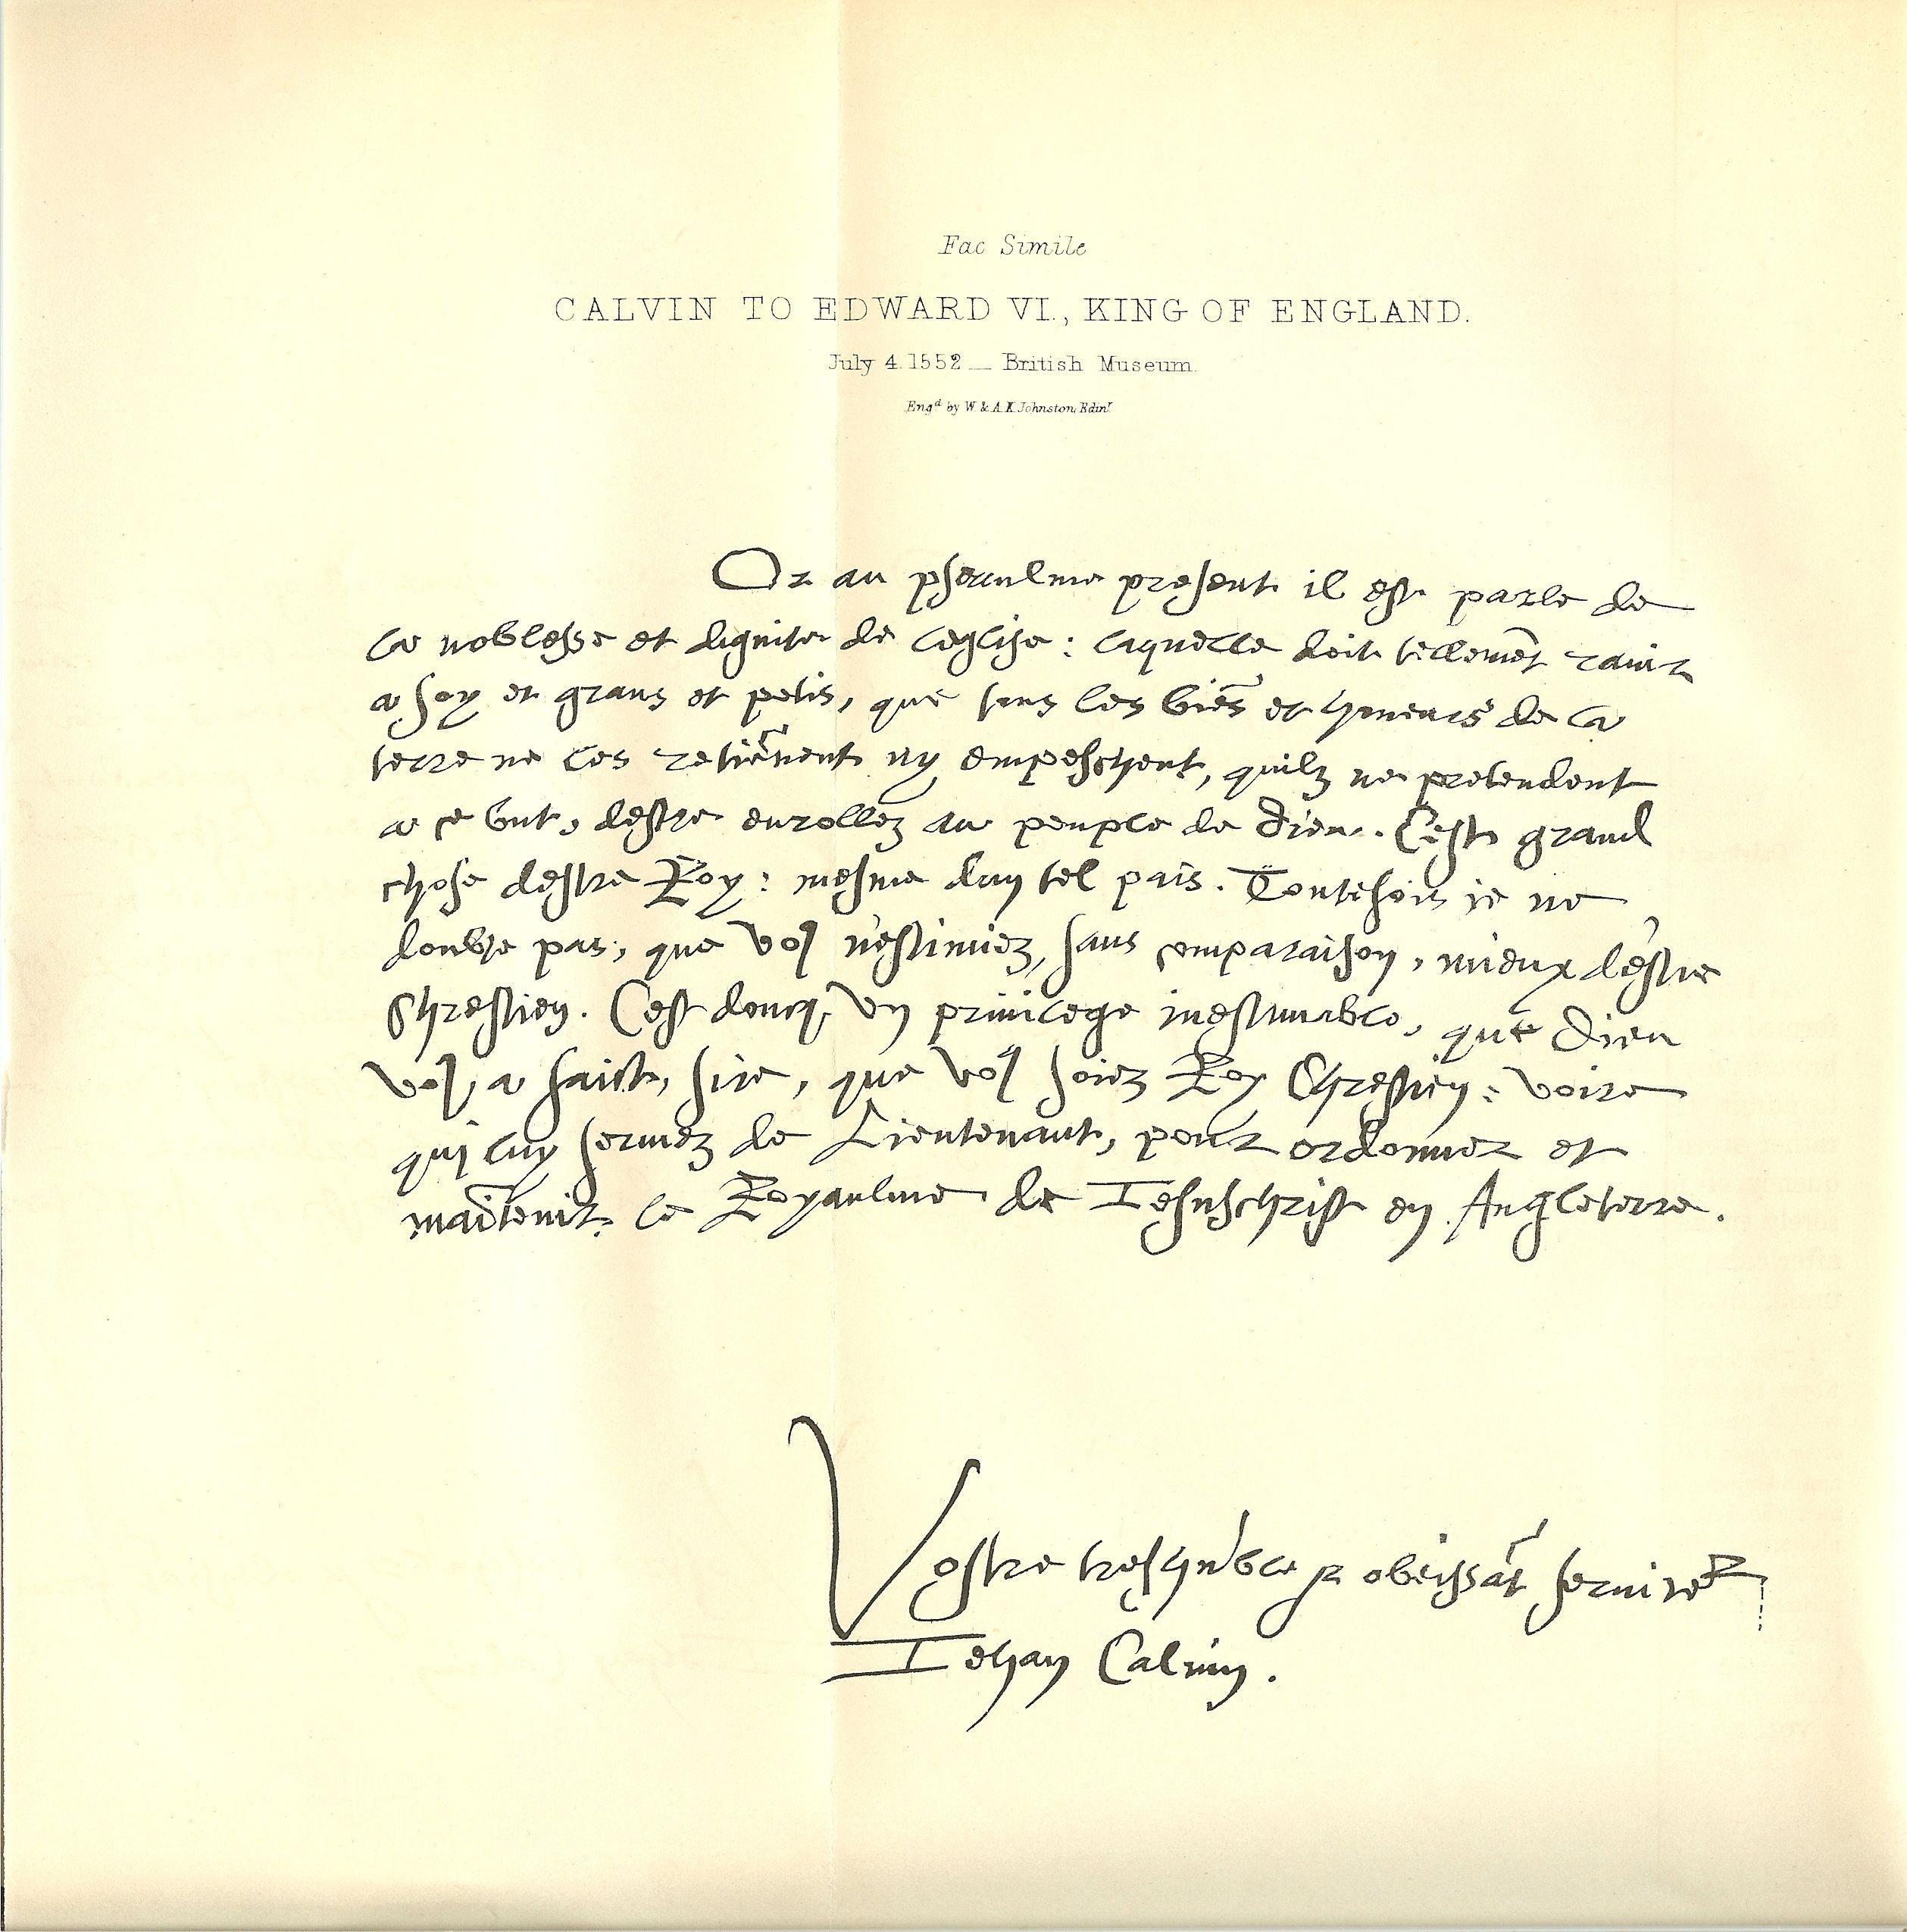 Fac Simile
CALVIN TO EDWARD VI., KING OF ENGLAND.
July 4. 1552 — British Museum.
Engd by W. & A. K. Johnston, Edinr.
Or au pseaulme present il est parle de
la noblesse et dignite de leglise : laquelle doit tellemēt rauir
a soy et grans et petis, que tous les biēs et honeurs de la
terre ne les retiēnent ny empeschent, quilz ne pretendent
a ce but, destre enrollez au peuple de Dieu. Cest grand
chose destre Roy : mesme dun tel pais. Toutesfois ie ne
doubte pas, que voꝰ n'estimiez, sans comparaison, mieux d'estre
Chrestien. Cest doncq un priuilege inestimable, que Dieu
voꝰ a faict, sire, que voꝰ soiez Roy Chrestien : voire
qui luy seruiez de Lieutenant, pour ordonner et
maītenir le Royaulme de Iesuschrist en Angleterre.
Vostre treshūble et obeissāt seruiteur
Iehan Caluin.